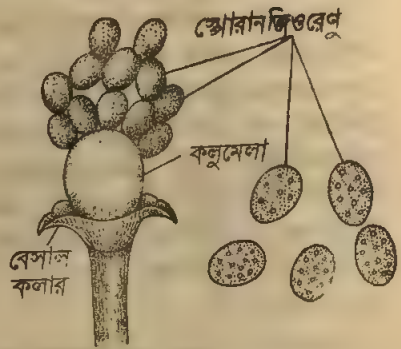 স্পোরানজিওরেণু
কলুমেলা
বেসাল
কলার